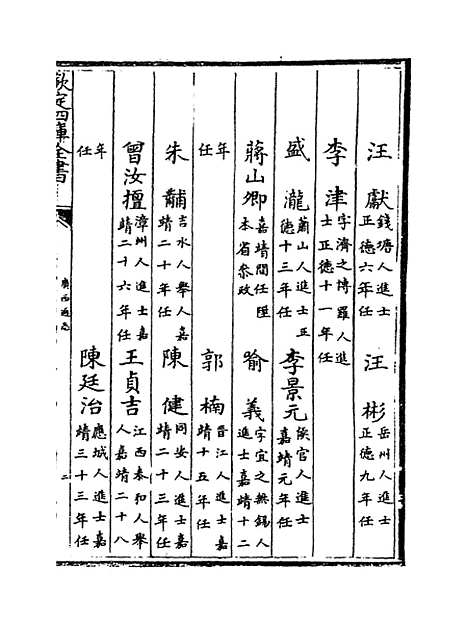 汪獻 錢塘人進士正德六年任 汪彬 岳州人進士正德九年任
李津 字濟之博羅人進士正德十一年任
盛瀧 蕭山人進士正德十三年任 李景元 侯官人進士嘉靖元年任
蔣山卿 嘉靖間任陞本省叅政 喻義 字宜之無錫人進士嘉靖十二
年任 郭楠 晉江人進士嘉靖十五年任
朱黼 吉水人舉人嘉靖二十年任 陳健 同安人進士嘉靖二十三年任
曾汝檀 漳州人進士嘉靖二十六年任 王貞吉 江西泰和人舉人嘉靖二十八
年任 陳廷治 應城人進士嘉靖三十三年任
欽定四庫全書
廣西通志
二